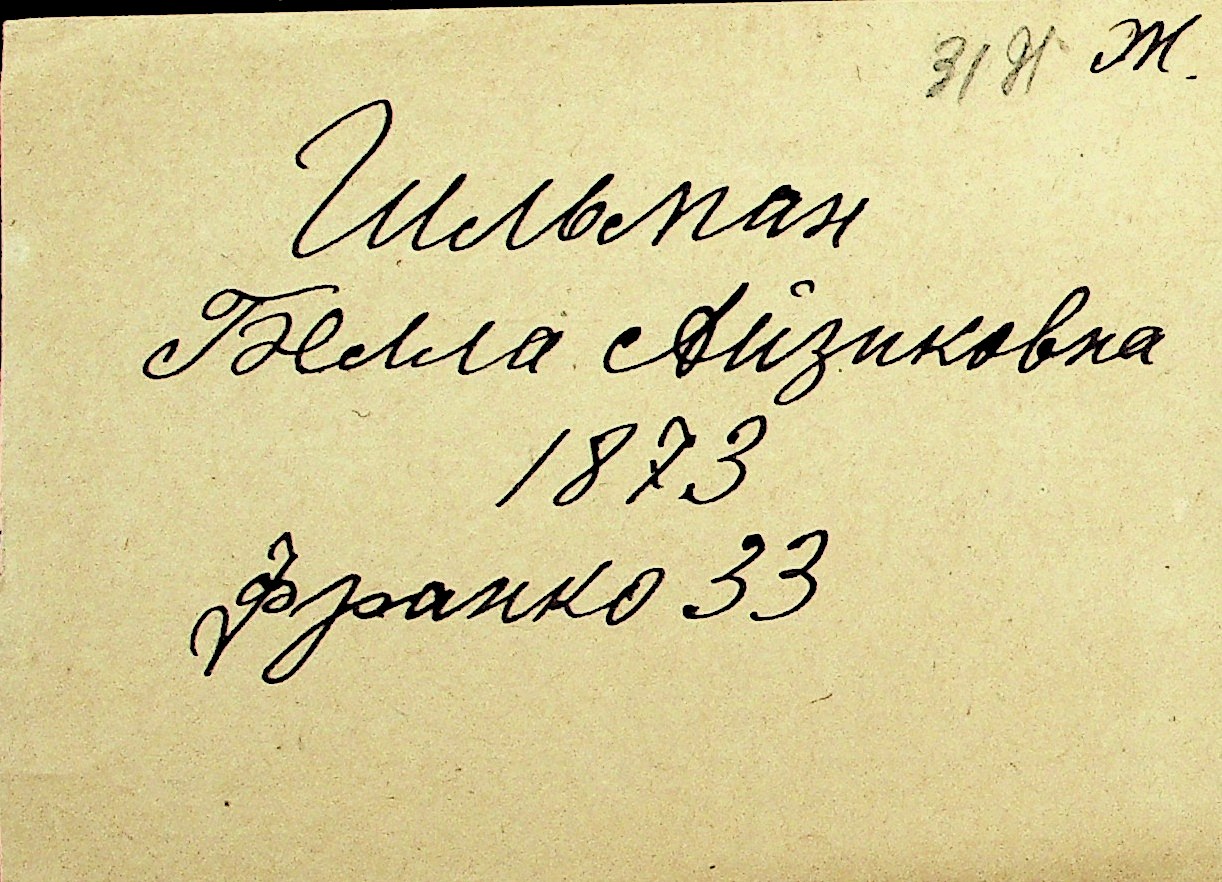 Ж.
Гильман
Белла Айзиковна
1873
Франко 33